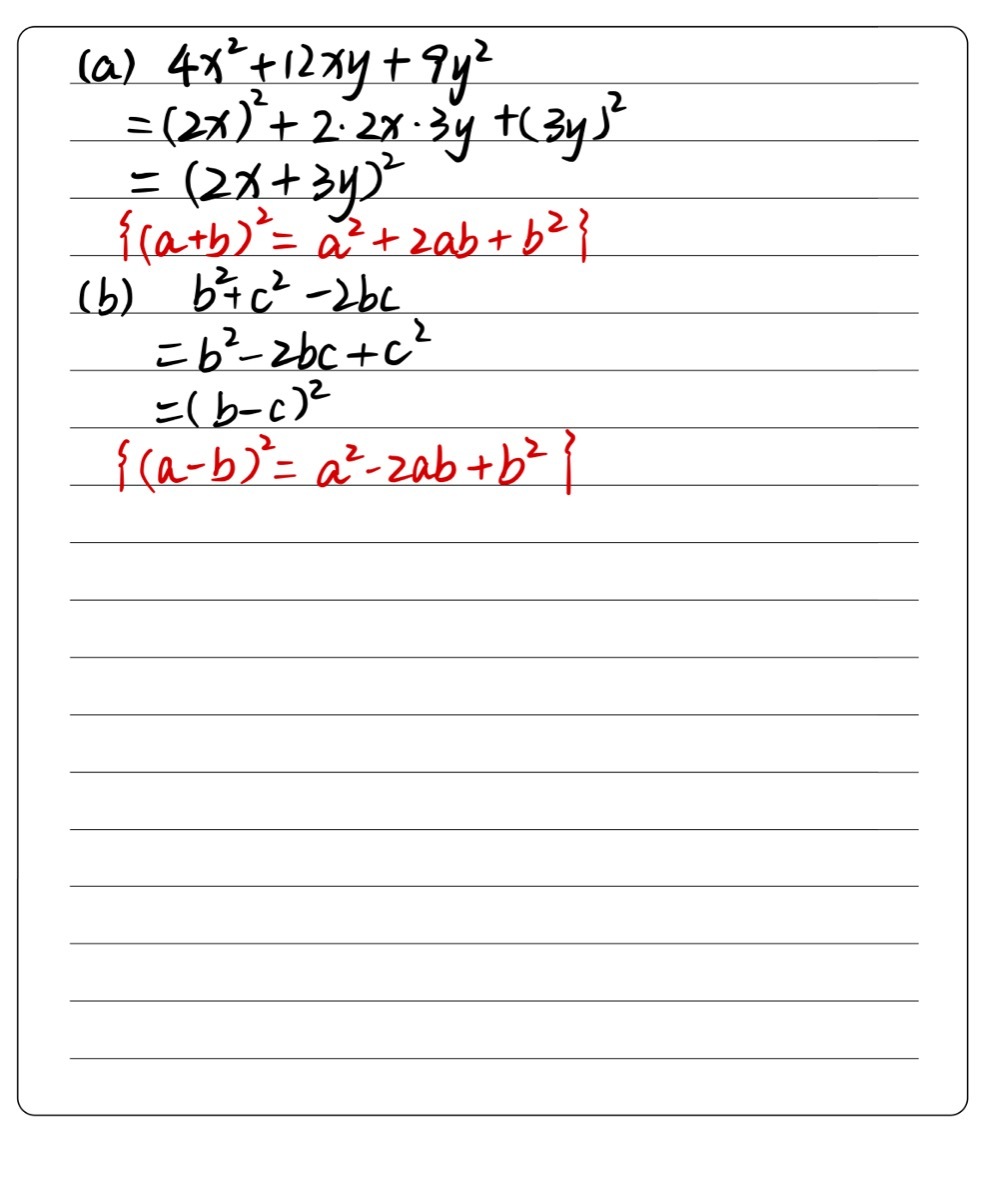 (a) 4x²+12xy+9y²
=(2x)²+2·2x·3y+(3y)²
=(2x+3y)²
{(a+b)²=a²+2ab+b²}
(b) b²+c²-2bc
=b²-2bc+c²
=(b-c)²
{(a-b)²=a²-2ab+b²}